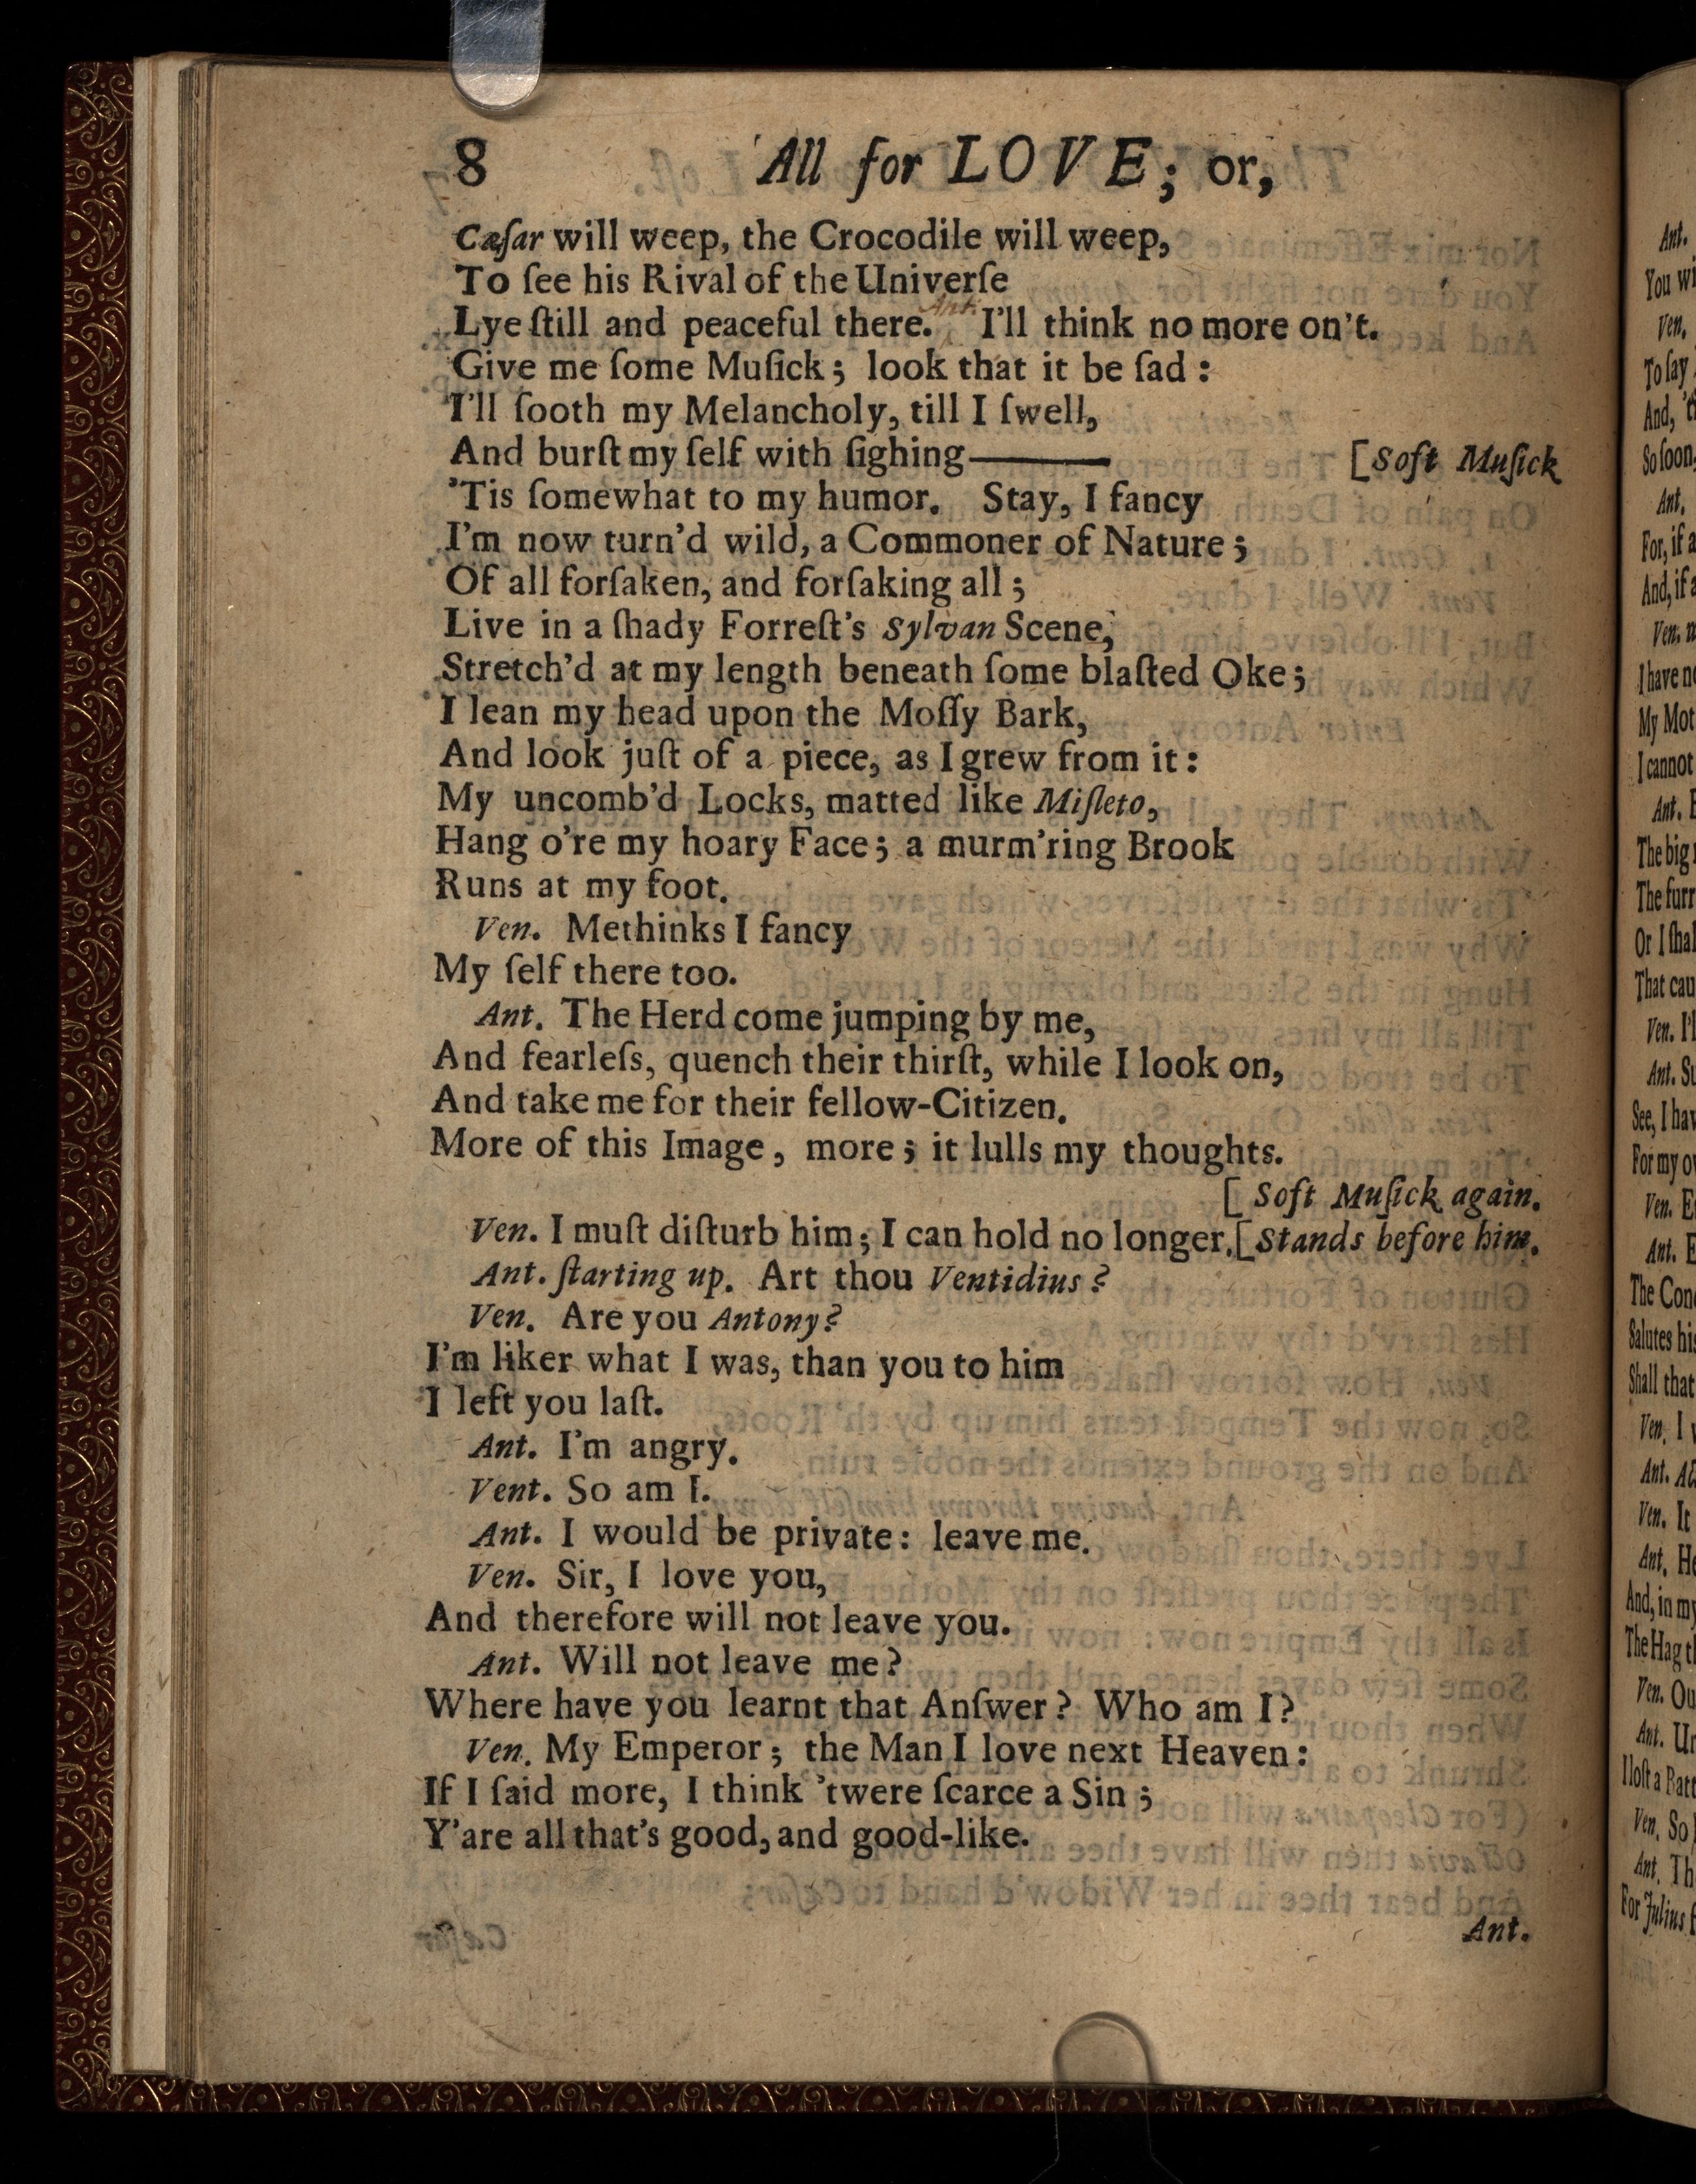 8 All for LOVE; or,
Cæſar will weep, the Crocodile will weep,
To ſee his Rival of the Univerſe
Lye ſtill and peaceful there. Ant. I'll think no more on't.
Give me ſome Muſick; look that it be ſad:
I'll ſooth my Melancholy, till I ſwell,
And burſt my ſelf with ſighing—— [Soft Muſick
'Tis ſomewhat to my humor. Stay, I fancy
I'm now turn'd wild, a Commoner of Nature;
Of all forſaken, and forſaking all;
Live in a ſhady Forreſt's Sylvan Scene,
Stretch'd at my length beneath ſome blaſted Oke;
I lean my head upon the Moſſy Bark,
And look juſt of a piece, as I grew from it:
My uncomb'd Locks, matted like Miſleto,
Hang o're my hoary Face; a murm'ring Brook
Runs at my foot.
Ven. Methinks I fancy
My ſelf there too.
Ant. The Herd come jumping by me,
And fearleſs, quench their thirſt, while I look on,
And take me for their fellow-Citizen.
More of this Image, more; it lulls my thoughts.
[Soft Muſick again.
Ven. I muſt diſturb him; I can hold no longer. [Stands before him.
Ant. ſtarting up. Art thou Ventidius?
Ven. Are you Antony?
I'm liker what I was, than you to him
I left you laſt.
Ant. I'm angry.
Vent. So am I.
Ant. I would be private: leave me.
Ven. Sir, I love you,
And therefore will not leave you.
Ant. Will not leave me?
Where have you learnt that Anſwer? Who am I?
Ven. My Emperor; the Man I love next Heaven:
If I ſaid more, I think 'twere ſcarce a Sin;
Y'are all that's good, and good-like.
Ant.
Ant.
You wi
Ven.
To ſay
And, 't
So ſoon
Ant.
For, if a
And, if a
Ven.
I have n
My Mot
I cannot
Ant.
The big
The furr
Or I ſhal
That cau
Ven. I'l
Ant. Su
See, I hav
For my o
Ven.
Ant.
The Con
Salutes his
Shall that
Ven. I
Ant.
Ven. It
Ant. He
And, in my
The Hag t
Ven. Ou
Ant. Un
I loſt a Batt
Ven. So
Ant. Th
For Julius